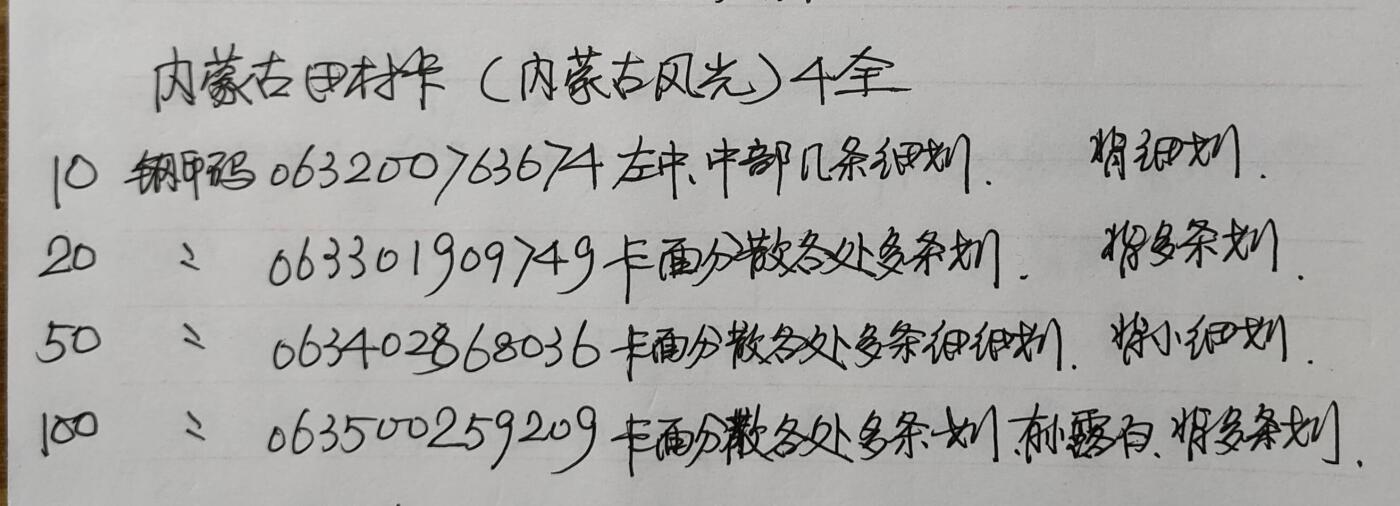 内蒙古田村卡（内蒙古风光）4全
10 钢印码 063200763674 左中、中部几条细划. 背细划.
20 〃 063301909749 卡面分散各处多条划. 背多条划.
50 〃 063402868036 卡面分散各处多条细细划. 背小细划.
100 〃 063500259209 卡面分散各处多条划、有小露白、背多条划.